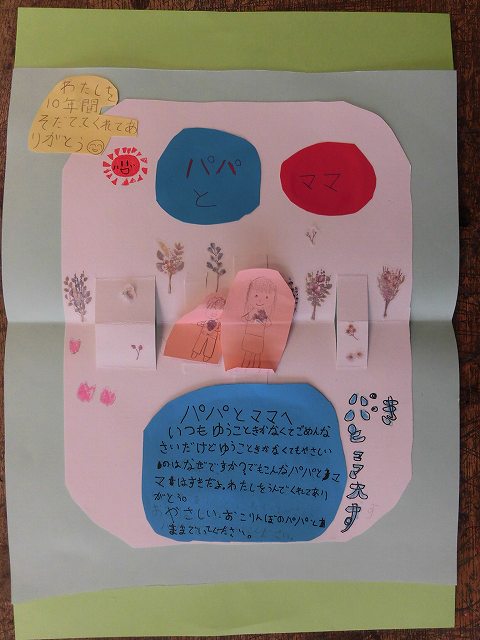 わたしを
10年間
そだててくれてあ
りがとう
パパ
と
ママ
パパとママへ
いつもゆうこときかなくてごめんな
さいだけどゆうこときかなくてもやさしい
のはなぜですか?でもこんなパパとママ
はすきだよ。わたしをうんでくれてあり
がとう。
やさしい、おこりんぼのパパと
ままでいてください。
パパとママ大すき